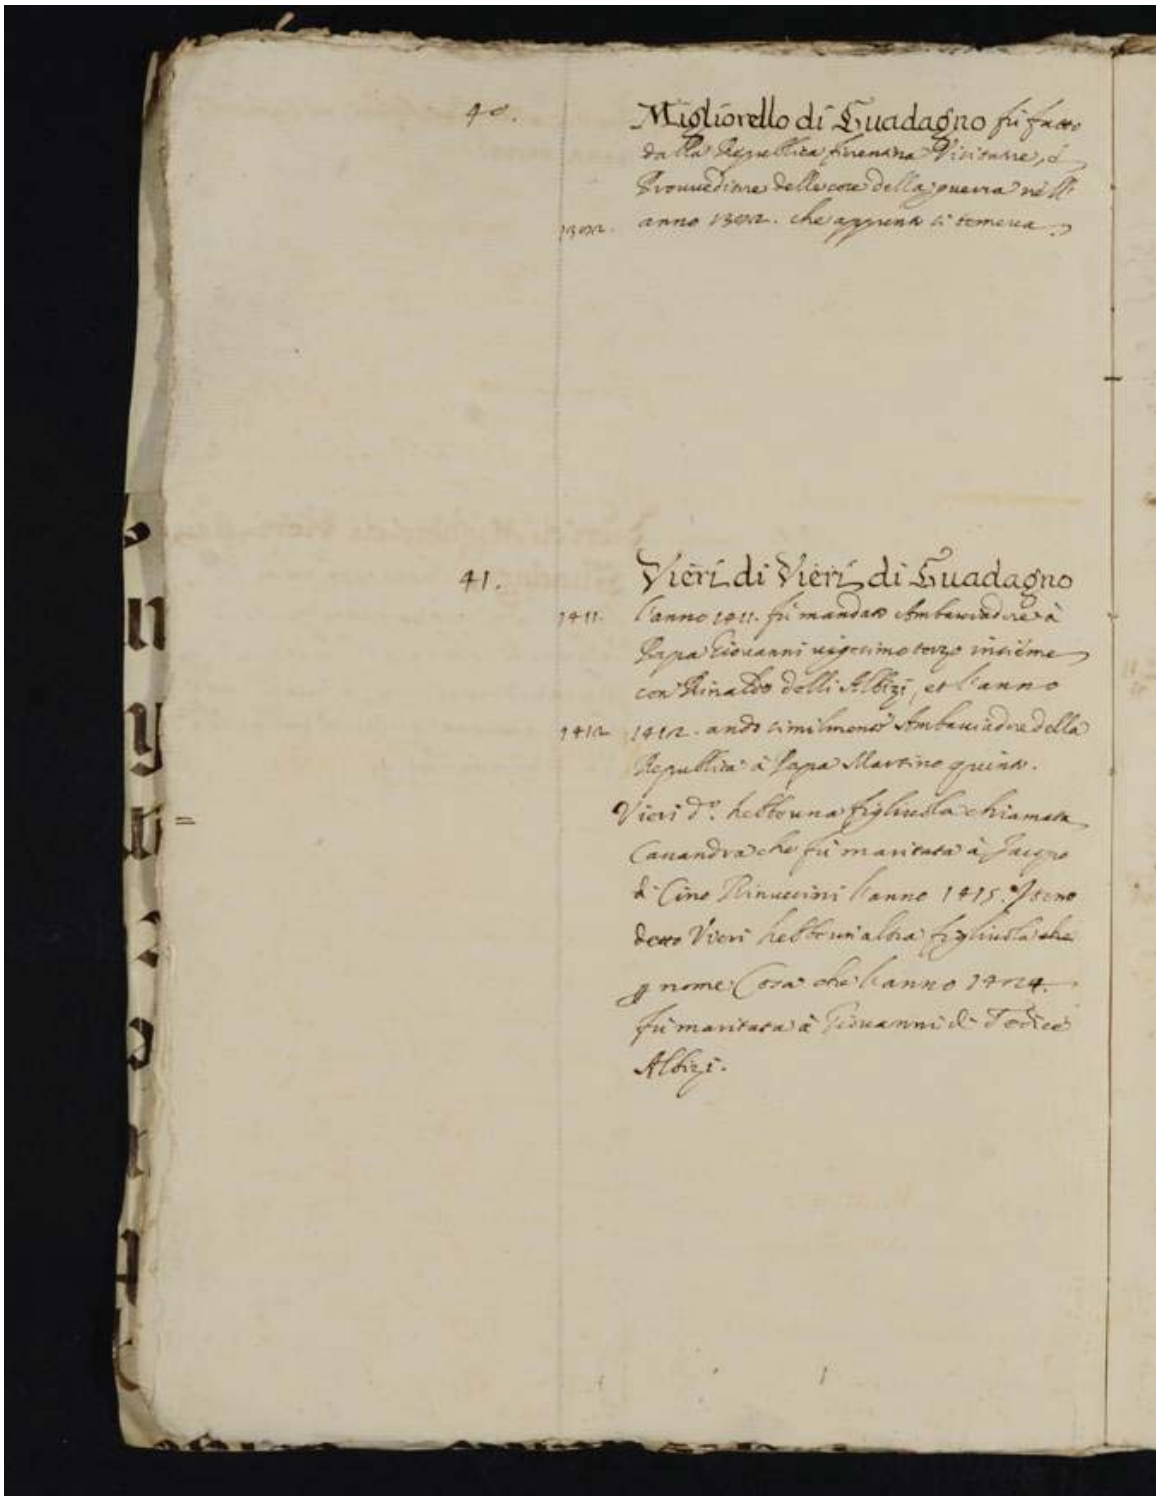 40.
Migliorello di Guadagno fù fatto
dalla Republica fiorentina Visitatore, è
Provveditore delle cose della guerra nell'
1302. anno 1302. che appunto si temeua.
41.
Vieri di Vieri di Guadagno
1411. l'anno 1411. fù mandato Ambasciadore à
Papa Giouanni uigesimo terzo insieme
con Rinaldo delli Albizi, et l'anno
1412 1412. andò similmente Ambasciadore della
Republica à Papa Martino quinto.
= Vieri d.º hebbe una figliuola chiamata
Cauandra che fù maritata à Jacopo
di Cino Rinuccini l'anno 1415. Item
detto Vieri hebbe un altra figliuola che
p nome Cosa che l'anno 1424.
fù maritata à Giouanni di
Albizi.